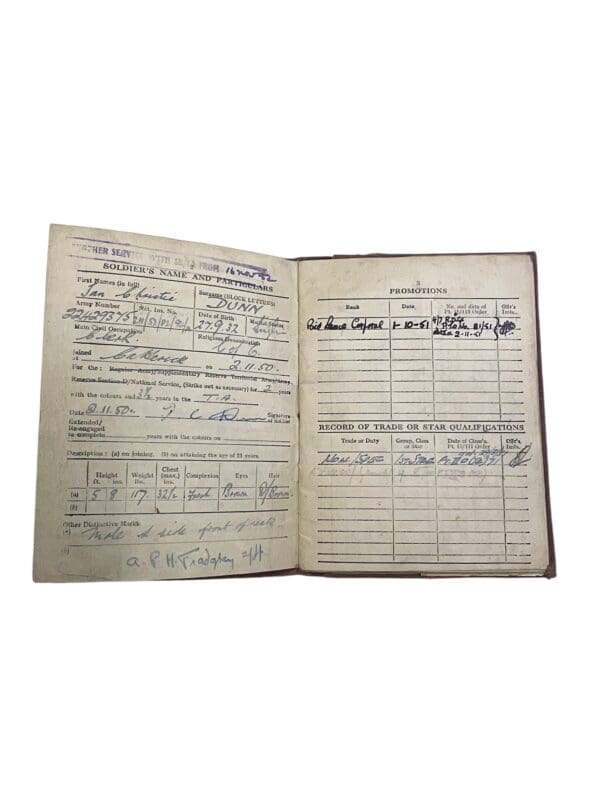 SERVICE FROM 16 NOV 52
SOLDIER'S NAME AND PARTICULARS
First Names (in full) Surname (BLOCK LETTERS)
Ian Christie DUNN
Army Number Nat. Ins. No. Date of Birth Marital Status
22429375 27.9.32 Single
Main Civil Occupation Religious Denomination
Clerk. C of E.
Joined
at Catterick on 2.11.50.
For the: Regular Army/Supplementary Reserve Territorial Army/Army
Reserve Section D/National Service, (Strike out as necessary) for 2 years
with the colours and 3½ years in the T.A.
Date 2.11.50. Signature of Soldier
Extended/
Re-engaged
to complete years with the colours on
Description: (a) on joining. (b) on attaining the age of 21 years.
Height Weight Chest Complexion Eyes Hair
ft. ins. lbs. (max.) ins.
(a) 5 8 117 32½ Fresh Brown D/Brown
(b)
Other Distinctive Marks
Mole side front of neck
A. P. H.
3
PROMOTIONS
Rank Date No. and date of Pt. II/III Order Offr's Inits.
Paid Lance Corporal 1-10-51 2-11-51
RECORD OF TRADE OR STAR QUALIFICATIONS
Trade or Duty Group, Class or Star Date of Class'n. Pt. II/III Order Offr's Inits.